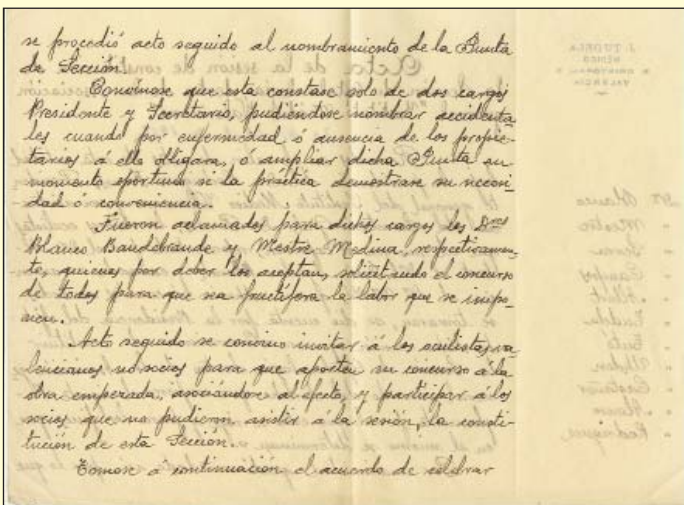 se procedió acto seguido al nombramiento de la Junta
de Sección.
Convínose que esta constase solo de dos cargos
Presidente y Secretario, pudiéndose nombrar accidenta-
les cuando por enfermedad ó ausencia de los propie-
tarios á ello obligara, ó ampliar dicha Junta en
momento oportuno si la práctica demostrase su necesi-
dad ó conveniencia.
Fueron aclamados para dichos cargos los Dres
Blanco Baudebrande y Mestre Medina, respectivamen-
te, quienes por deber los aceptan, solicitando el concurso
de todos para que sea fructífera la labor que se impo-
nen.
Acto seguido se convino invitar á los oculistas va-
lencianos no socios para que aporten su concurso á la
obra empezada, asociándose al efecto, y participar á los
socios que no pudieron asistir á la sesión, la consti-
tución de esta Sección.
Tomose á continuación el acuerdo de celebrar
J. TUDELA
MÉDICO
VALENCIA
Dr. Blanco
" Mestre
" Albert
" Tudela
" Rodriguez